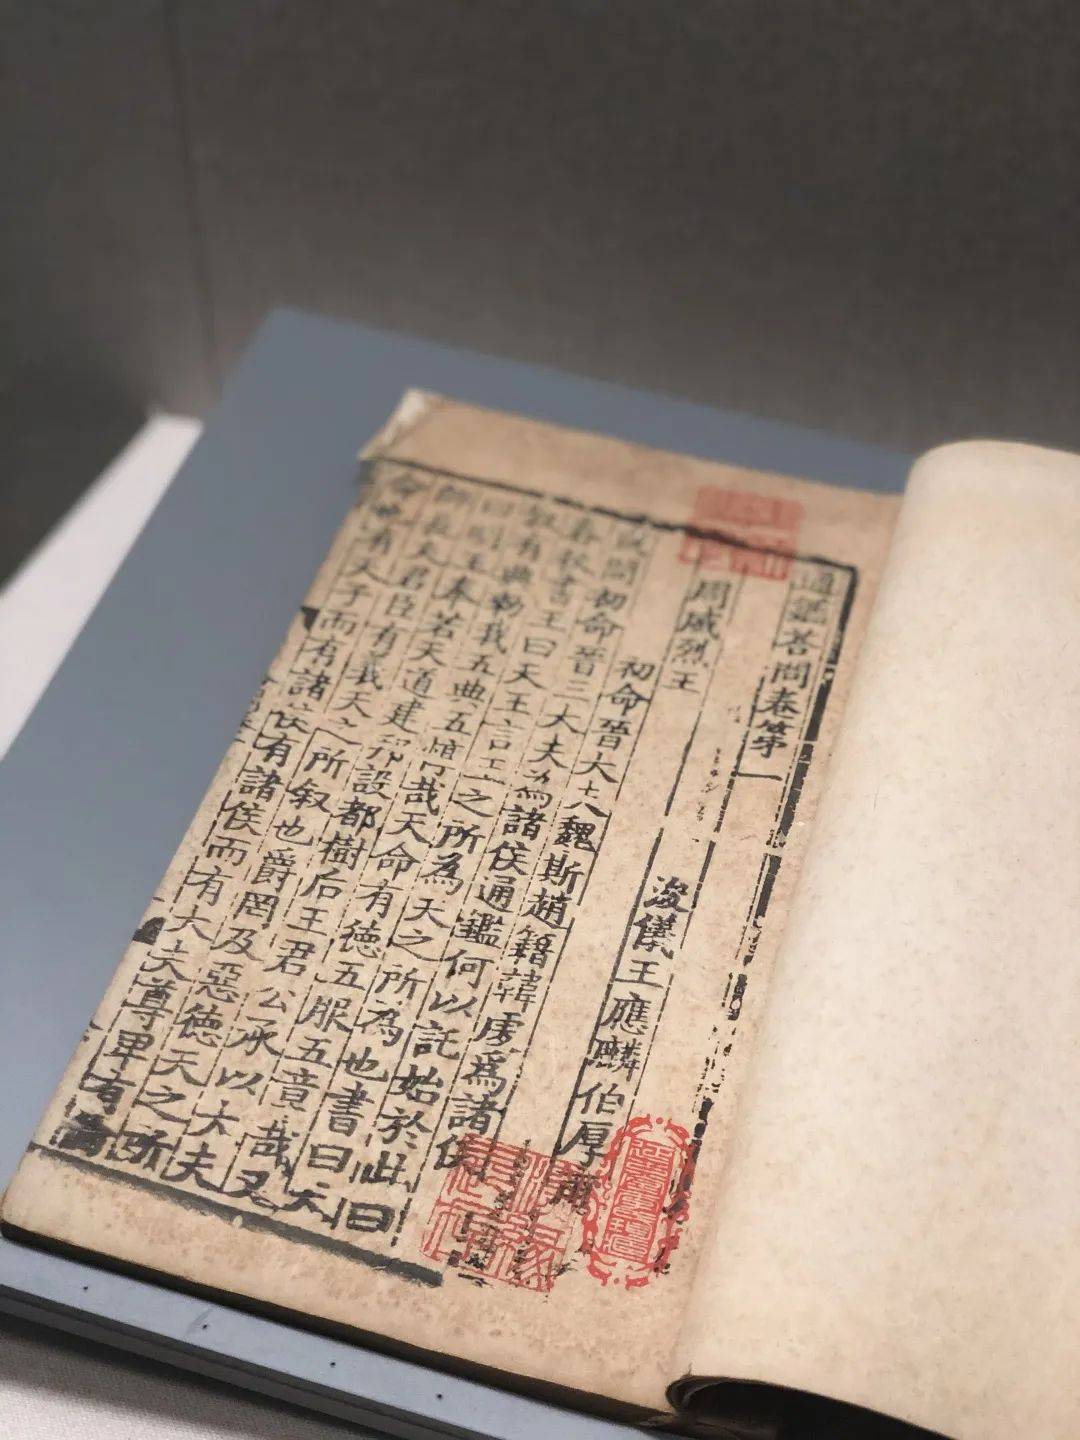 通鑑答問卷第一
浚儀王應麟伯厚甫
周威烈王
初命晉大夫魏斯趙籍韓虔爲諸侯
或問初命晉三大夫為諸侯通鑑何以託始於此曰
春秋書王曰天王言王之所為天之所為也書曰天
叙有典勑我五典五惇哉天命有德五服五章哉又
曰明王奉若天道建邦設都樹后王君公承以大夫
師長夫君臣有義天之所叙也爵罔及惡德天之所
命也有天子而有諸侯有諸侯而有大夫尊卑有